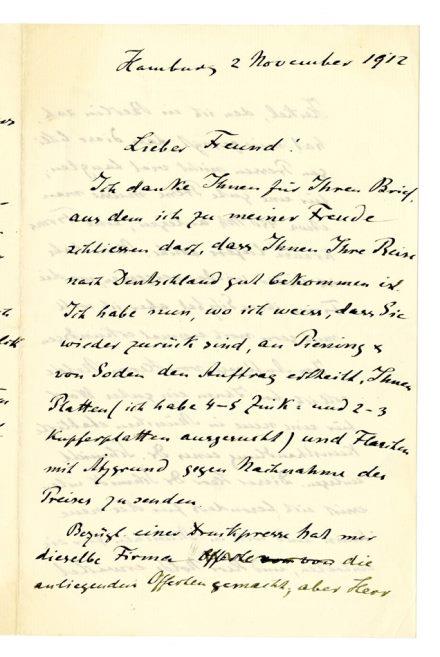 Hamburg 2 November 1912
Lieber Freund!
Ich danke Ihnen für Ihren Brief,
aus dem ich zu meiner Freude
schliessen darf, dass Ihnen Ihre Reise
nach Deutschland gut bekommen ist.
Ich habe nun, wo ich weiss, dass Sie
wieder zurück sind, an Piening &
von Soden den Auftrag ertheilt, Ihnen
Platten (ich habe 4-5 Zink= und 2-3
Kupferplatten ausgesucht) und Flaschen
mit Ätzgrund gegen Nachnahme des
Preises zu senden.
Bezügl. einer Druckpresse hat mir
dieselbe Firma die
anliegenden Offerten gemacht, aber Herr